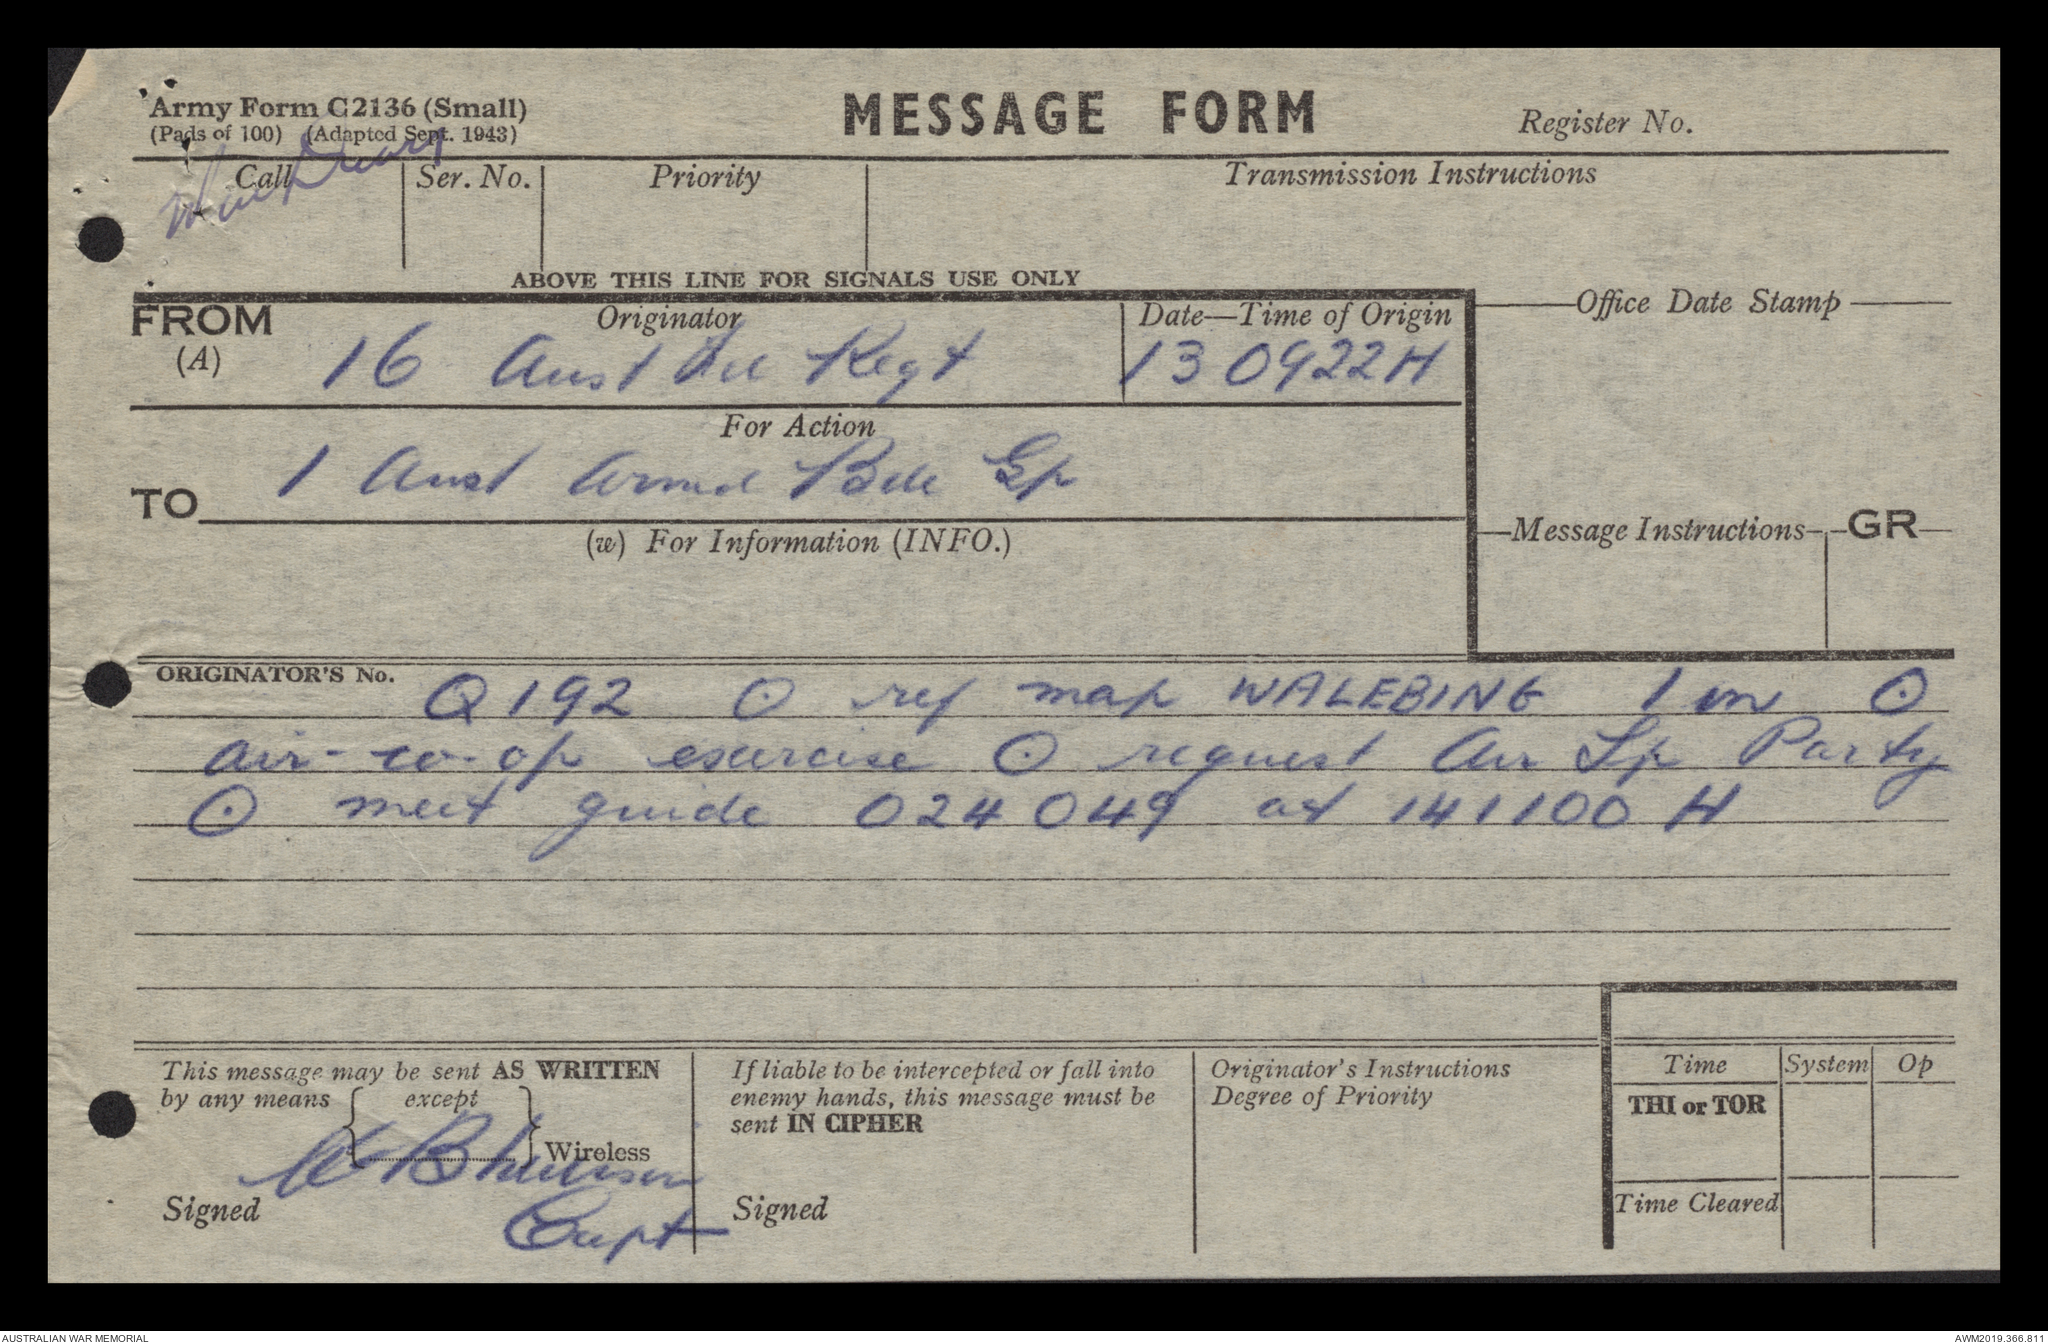 Army Form C2136 (Small)
(Pads of 100) (Adapted Sept. 1943)
MESSAGE FORM
Register No.
War Diary
Call
Ser. No.
Priority
Transmission Instructions
ABOVE THIS LINE FOR SIGNALS USE ONLY
FROM
(A)
Originator
16 Aust Regt
Date—Time of Origin
130922H
Office Date Stamp
For Action
TO
1 Aust Armd Bde Gp
(w) For Information (INFO.)
Message Instructions
GR
ORIGINATOR'S No.
Q192 ⊙ ref map WALEBING 1 m ⊙
air-co-op exercise ⊙ request Air Sp Party
⊙ meet guide 024049 at 141100 H
This message may be sent AS WRITTEN
by any means { except } Wireless
Signed
Capt
If liable to be intercepted or fall into
enemy hands, this message must be
sent IN CIPHER
Signed
Originator's Instructions
Degree of Priority
Time
System
Op
THI or TOR
Time Cleared
AUSTRALIAN WAR MEMORIAL
AWM2019.366.811